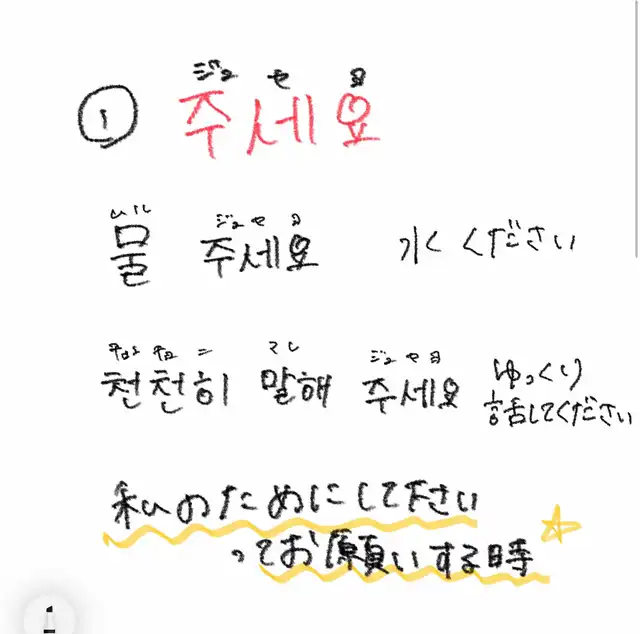 ジュ セ ヨ
① 주세요
ムル ジュ セ ヨ
물 주세요 水ください
ジュ セ ヨ
천천히 말해 주세요 ゆっくり
話してください
私のためにして下さい
ってお願いする時